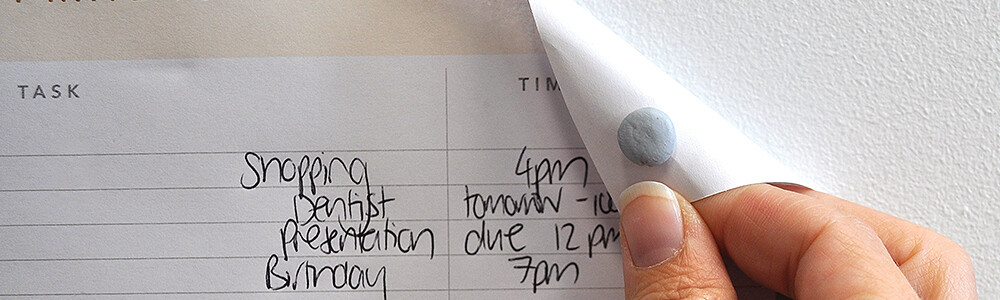 TASK TIM
Shopping 4pm
Dentist tomorrow -
Presentation due 12 pm
Birthday 7pm